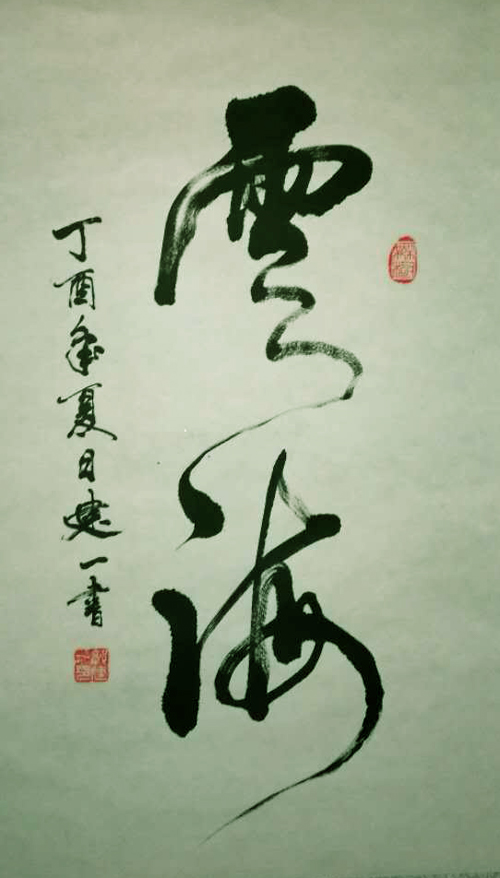 雲海
丁酉年夏日建一書